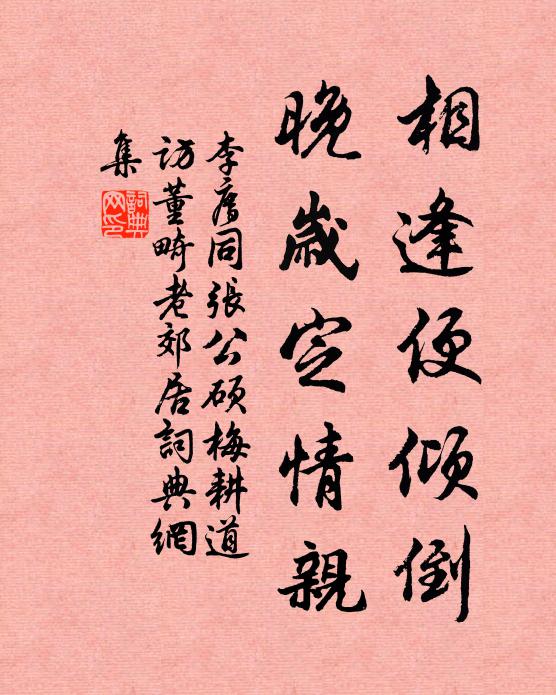 相逢便倾倒
晚歲定情親
李廌同張公硕梅耕道
訪董畸老郊居詞典網
集
詞典
网印